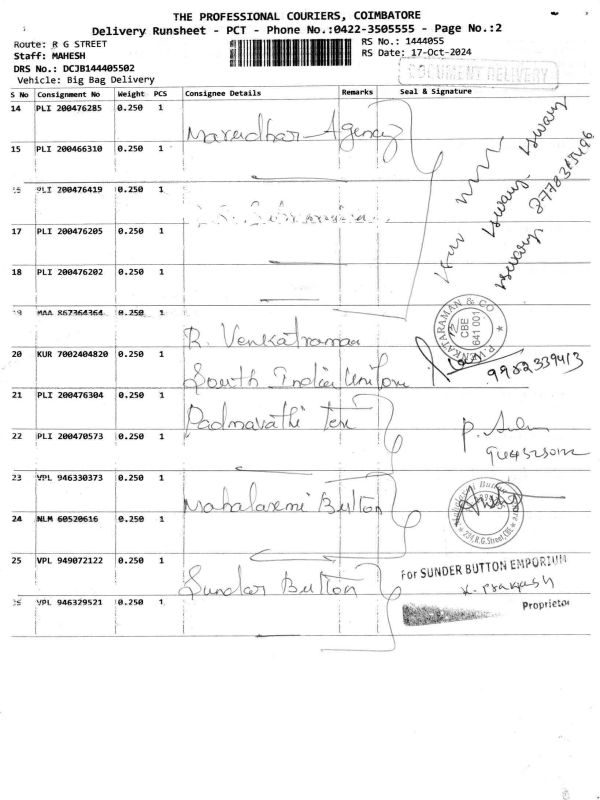 THE PROFESSIONAL COURIERS, COIMBATORE
Delivery Runsheet - PCT - Phone No.:0422-3505555 - Page No.:2
Route: R G STREET
RS No.: 1444055
Staff: MAHESH
RS Date: 17-Oct-2024
DRS No.: DCJB144405502
Vehicle: Big Bag Delivery
DOCUMENT DELIVERY
S No Consignment No Weight PCS Consignee Details Remarks Seal & Signature
14 PLI 200476285 0.250 1
Marudhar Agency
15 PLI 200466310 0.250 1
16 PLI 200476419 0.250 1
17 PLI 200476205 0.250 1
18 PLI 200476202 0.250 1
19 MAA 867364364 0.250 1
R. Venkatraman
P. VENKATARAMAN & CO
CBE
641 001
20 KUR 7002404820 0.250 1
South India Uniform
21 PLI 200476304 0.250 1
Padmavathi Tex
22 PLI 200470573 0.250 1
23 VPL 946330373 0.250 1
Mahalaxmi Button
24 NLM 60520616 0.250 1
25 VPL 949072122 0.250 1
Sundar Button
For SUNDER BUTTON EMPORIUM
K. Prakash
26 VPL 946329521 0.250 1
Proprietor